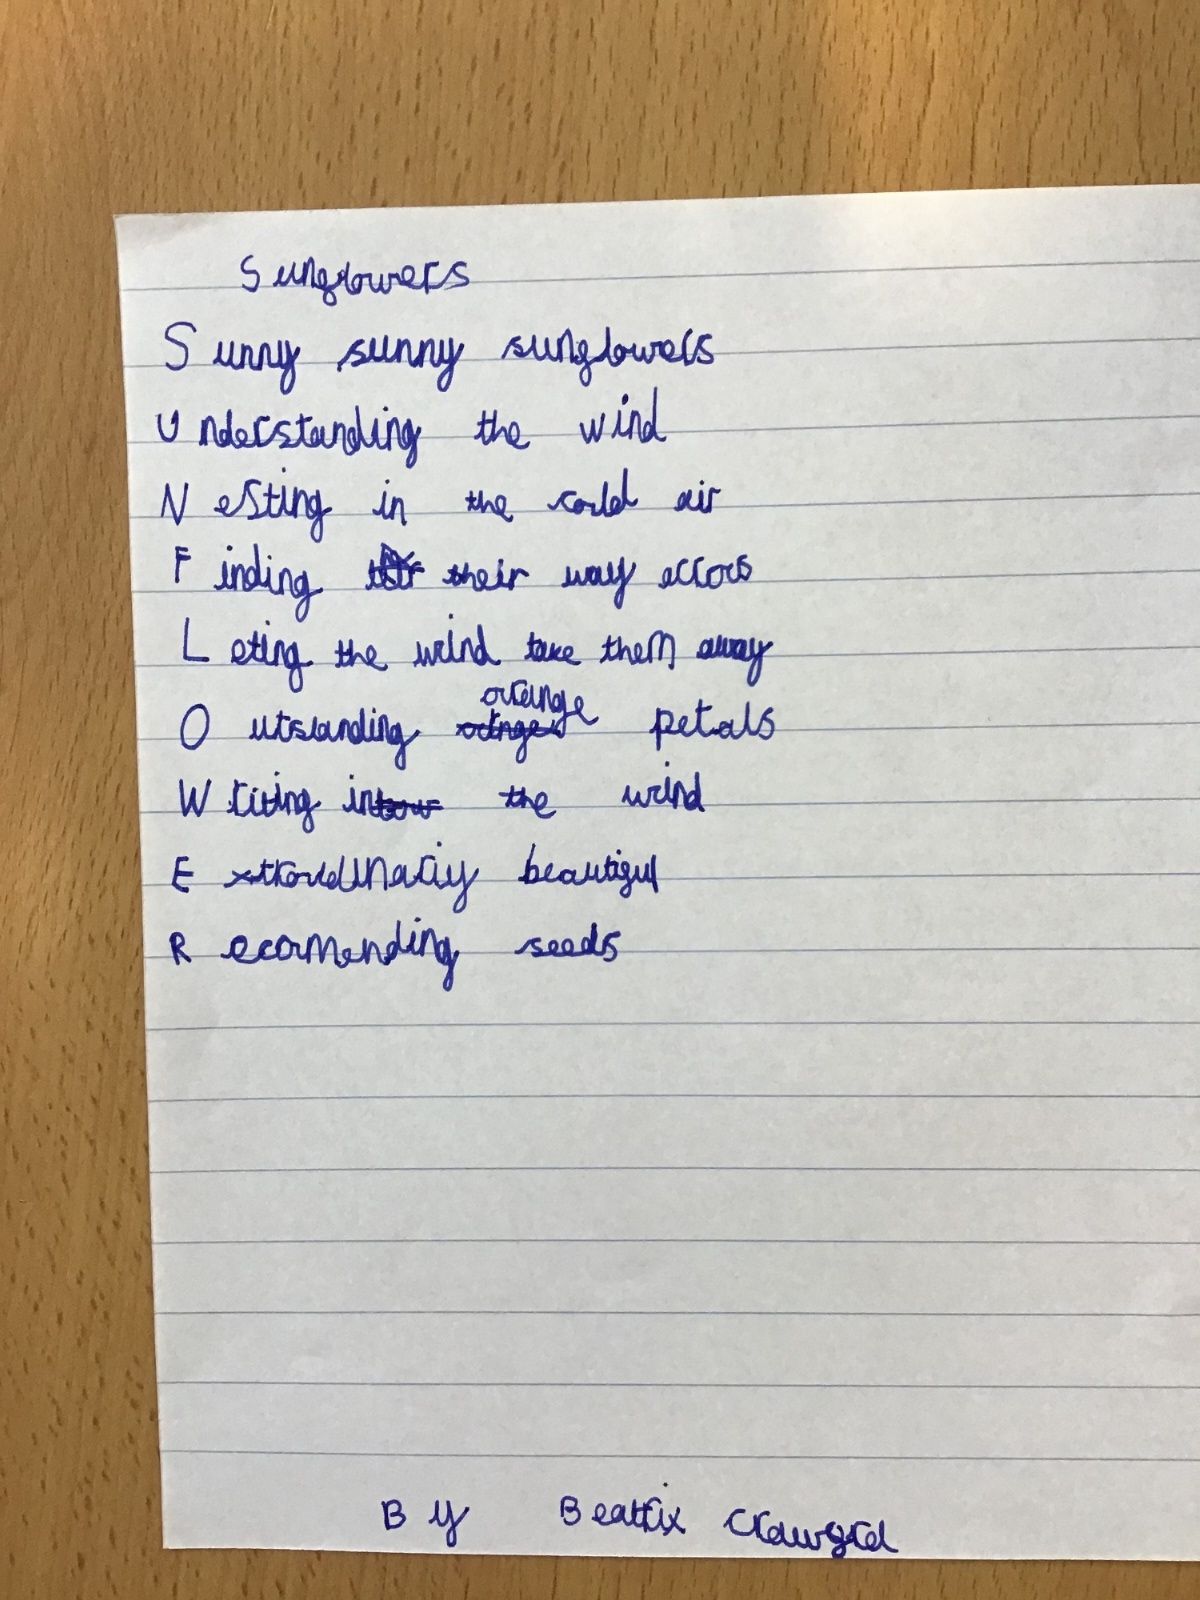 Sunflowers
Sunny sunny sunflowers
Understanding the wind
Nesting in the cold air
Finding their way accros
Leting the wind take them away
Outstanding orange petals
Writing in the wind
Extraordinariy beautiful
Recomending seeds
By Beatrix Crawford